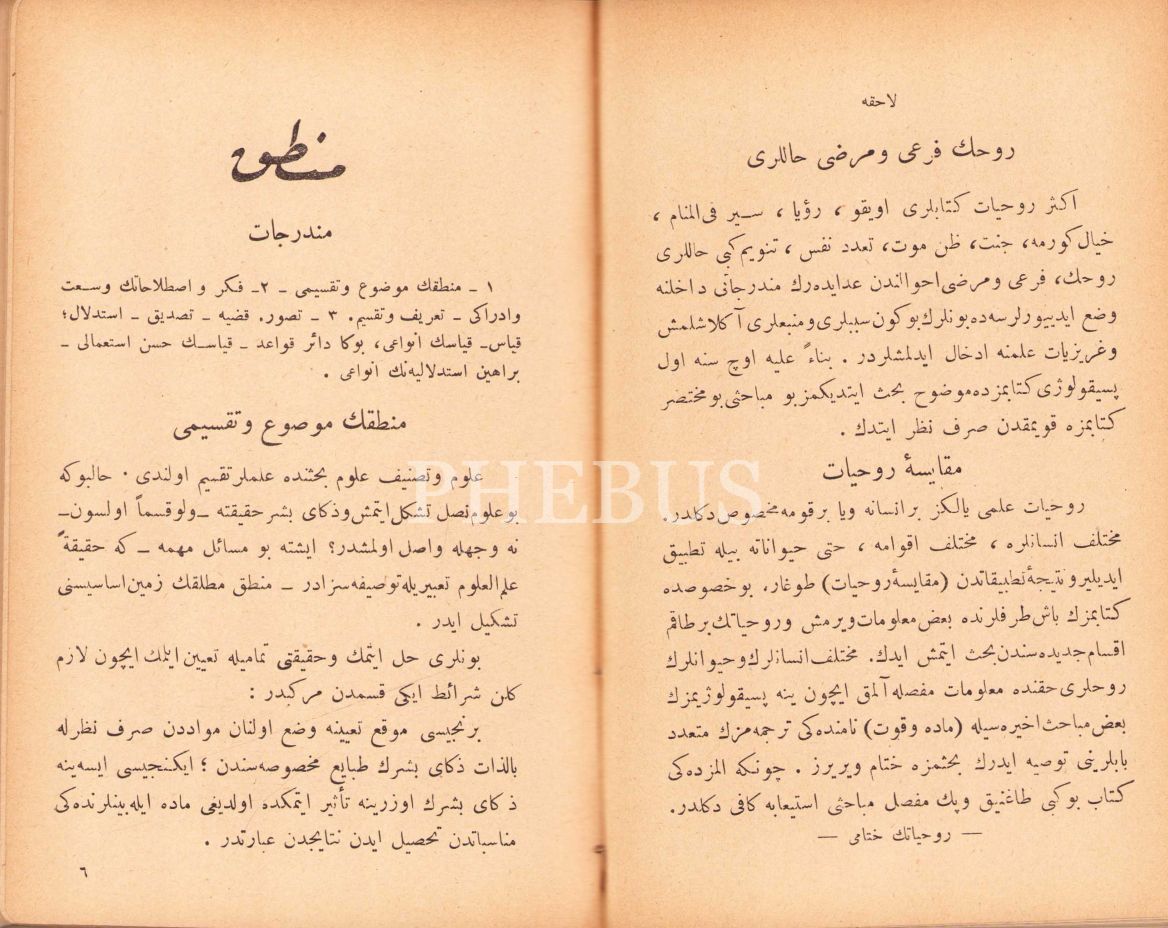 لاحقه
روحك فرعی و مرضی حاللری
اكثر روحيات كتابلری اويقو ، رؤيا ، سير فی‌المنام ،
خيال كورمه، جنت، ظن موت، تعدد نفس ، تنويم كبی حاللری
روحك، فرعی و مرضی احوالندن عد ايده‌رك مندرجاتی داخلنه
وضع ايدييورلرسه‌ده بونلرك بوكون سببلری و منبعلری آكلاشلمش
و غريزيات علمنه ادخال ايدلمشلردر . بناءً عليه اوچ سنه اول
پسيقولوژی كتابمزده موضوح بحث ايتديكمز بو مباحثی بو مختصر
كتابمزه قويمقدن صرف نظر ايتدك .
مقايسۀ روحيات
روحيات علمی يالكز بر انسانه ويا بر قومه مخصوص دكلدر.
مختلف انسانلره ، مختلف اقوامه ، حتی حيواناته بيله تطبيق
ايديلير و نتيجۀ تطبيقاتدن (مقايسۀ روحيات) طوغار. بو خصوصده
كتابمزك باش طرفلرنده بعض معلومات ويرمش و روحياتك بر طاقم
اقسام جديده سندن بحث ايتمش ايدك. مختلف انسانلرك و حيوانلرك
روحلری حقنده معلومات مفصله آلمق ايچون ينه پسيقولوژيمزك
بعض مباحث اخيره سيله (ماده و قوت) نامنده كی ترجمه مزك متعدد
بابلرينی توصيه ايدرك بحثمزه ختام ويريرز . چونكه المزده كی
كتاب بو كبی طاغنيق و پك مفصل مباحثی استيعابه كافی دكلدر.
— روحياتك ختامی —
منطق
مندرجات
١ ـ منطقك موضوع و تقسيمی ـ ٢ـ فكر و اصطلاحاتك وسعت
و ادراكی ـ تعريف و تقسيم. ٣ ـ تصور. قضيه ـ تصديق ـ استدلال؛
قياس‌ـ قياسك انواعی، بوكا دائر قواعد ـ قياسك حسن استعمالی ـ
براهين استدلاليه‌نك انواعی .
منطقك موصوع و تقسيمی
علوم و تصنيف علوم بحثنده علملر تقسيم اولندی . حالبوكه
بو علوم نصل تشكل ايتمش و ذكای بشر حقيقته ـ ولو قسماً اولسون‌ـ
نه وجهله واصل اولمشدر؟ ايشته بو مسائل مهمه ـ كه حقيقةً
علم‌العلوم تعبيريله توصيفه سزادر ـ منطق مطلقك زمين اساسيسنی
تشكيل ايدر .
بونلری حل ايتمك و حقيقتی تماميله تعيين ايتمك ايچون لازم
كلن شرائط ايكی قسمدن مركبدر :
برنجيسی موقع تعيينه وضع اولنان مواددن صرف نظرله
بالذات ذكای بشرك طبايع مخصوصه سندن ؛ ايكنجيسی ايسه ينه
ذكای بشرك اوزرينه تأثير ايتمكده اولديغی ماده ايله بينلرنده كی
مناسباتدن تحصيل ايدن نتايجدن عبارتدر .
٦
PHEBUS